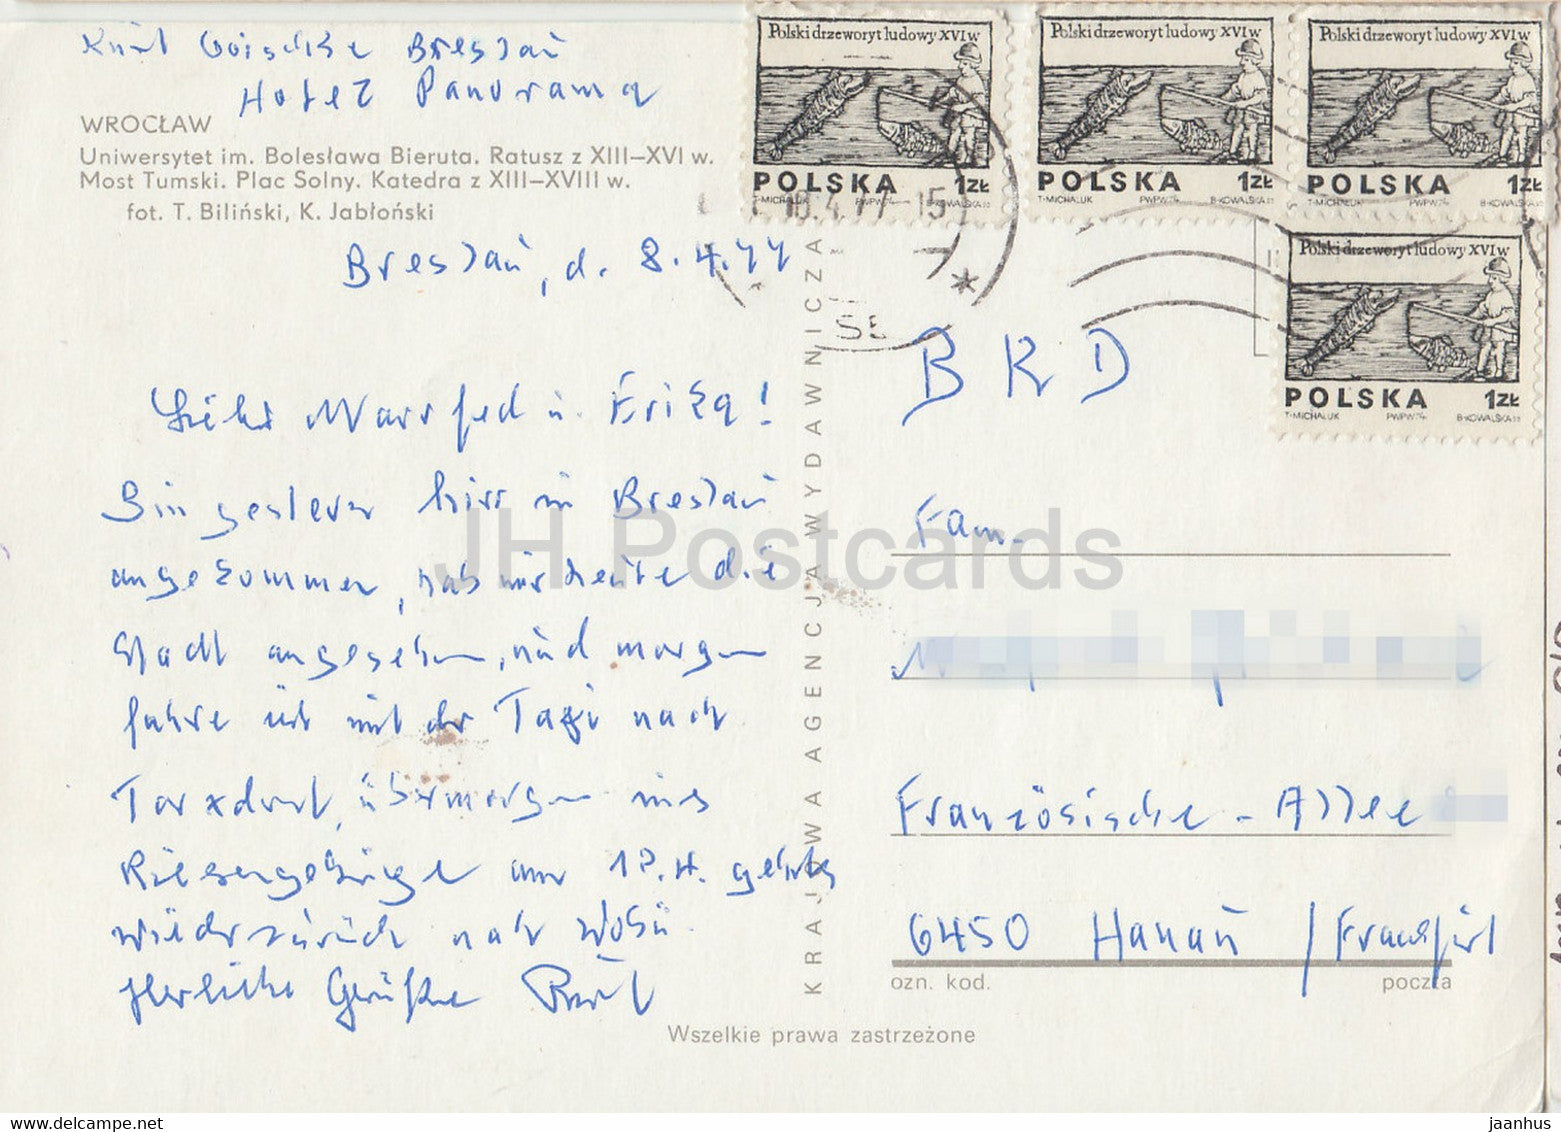 Breslau
Hotel Panorama
WROCŁAW
Uniwersytet im. Bolesława Bieruta. Ratusz z XIII–XVI w.
Most Tumski. Plac Solny. Katedra z XIII–XVIII w.
fot. T. Biliński, K. Jabłoński
Breslau, d. 8.4.77
Liebe Manfred u. Erika!
Bin gestern hier in Breslau
angekommen, hab mir heute die
Stadt angesehen, und morgen
fahre ich mit der Taxi nach
übermorgen ins
Riesengebirge am 12.4. gehts
wieder zurück nach
Herzliche Grüße
Polski drzeworyt ludowy XVI w
POLSKA 1 ZŁ
T·MICHALUK PWPW'74 B·KOWALSKA
Polski drzeworyt ludowy XVI w
POLSKA 1 ZŁ
T·MICHALUK PWPW'74 B·KOWALSKA
Polski drzeworyt ludowy XVI w
POLSKA 1 ZŁ
T·MICHALUK PWPW'74 B·KOWALSKA
Polski drzeworyt ludowy XVI w
POLSKA 1 ZŁ
T·MICHALUK PWPW'74 B·KOWALSKA
KRAJOWA AGENCJA WYDAWNICZA
BRD
Fam.
Französische-Allee
6450 Hanau / Frankfurt
ozn. kod. poczta
Wszelkie prawa zastrzeżone
JH Postcards
jaanhus